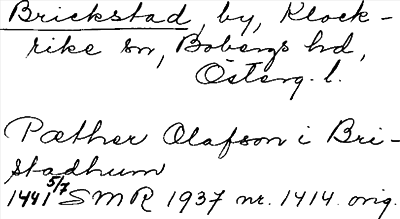 Brickstad, by, Klock-
rike sn, Bobergs hd,
Österg. l.
Pæther Olafson i Bri-
stadhum
1441 5/7 SMR 1937 nr. 1414. orig.